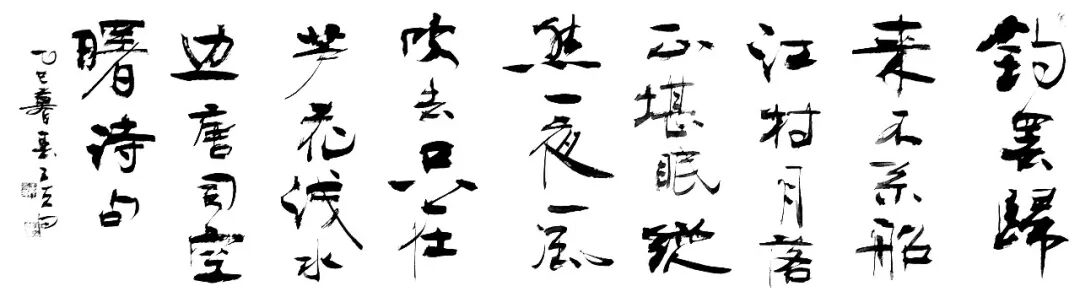 釣罢歸
来不系船
江村月落
正堪眠縱
然一夜風
吹去只在
芦花浅水
边唐司空
曙诗句
乙巳暮春